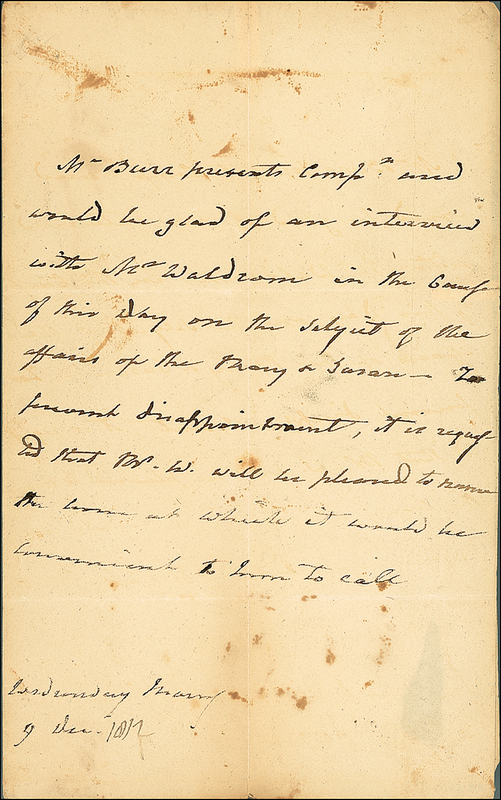 Mr Burr presents Compts and
would be glad of an interview
with Mr Waldrom in the Course
of this day on the subject of the
affairs of the Mary & Susan — To
prevent disappointment, it is reques
ted that Mr. W. will be pleased to name
the hour at which it would be
convenient to him to call
Wednesday Morng
9 Dec. 1812